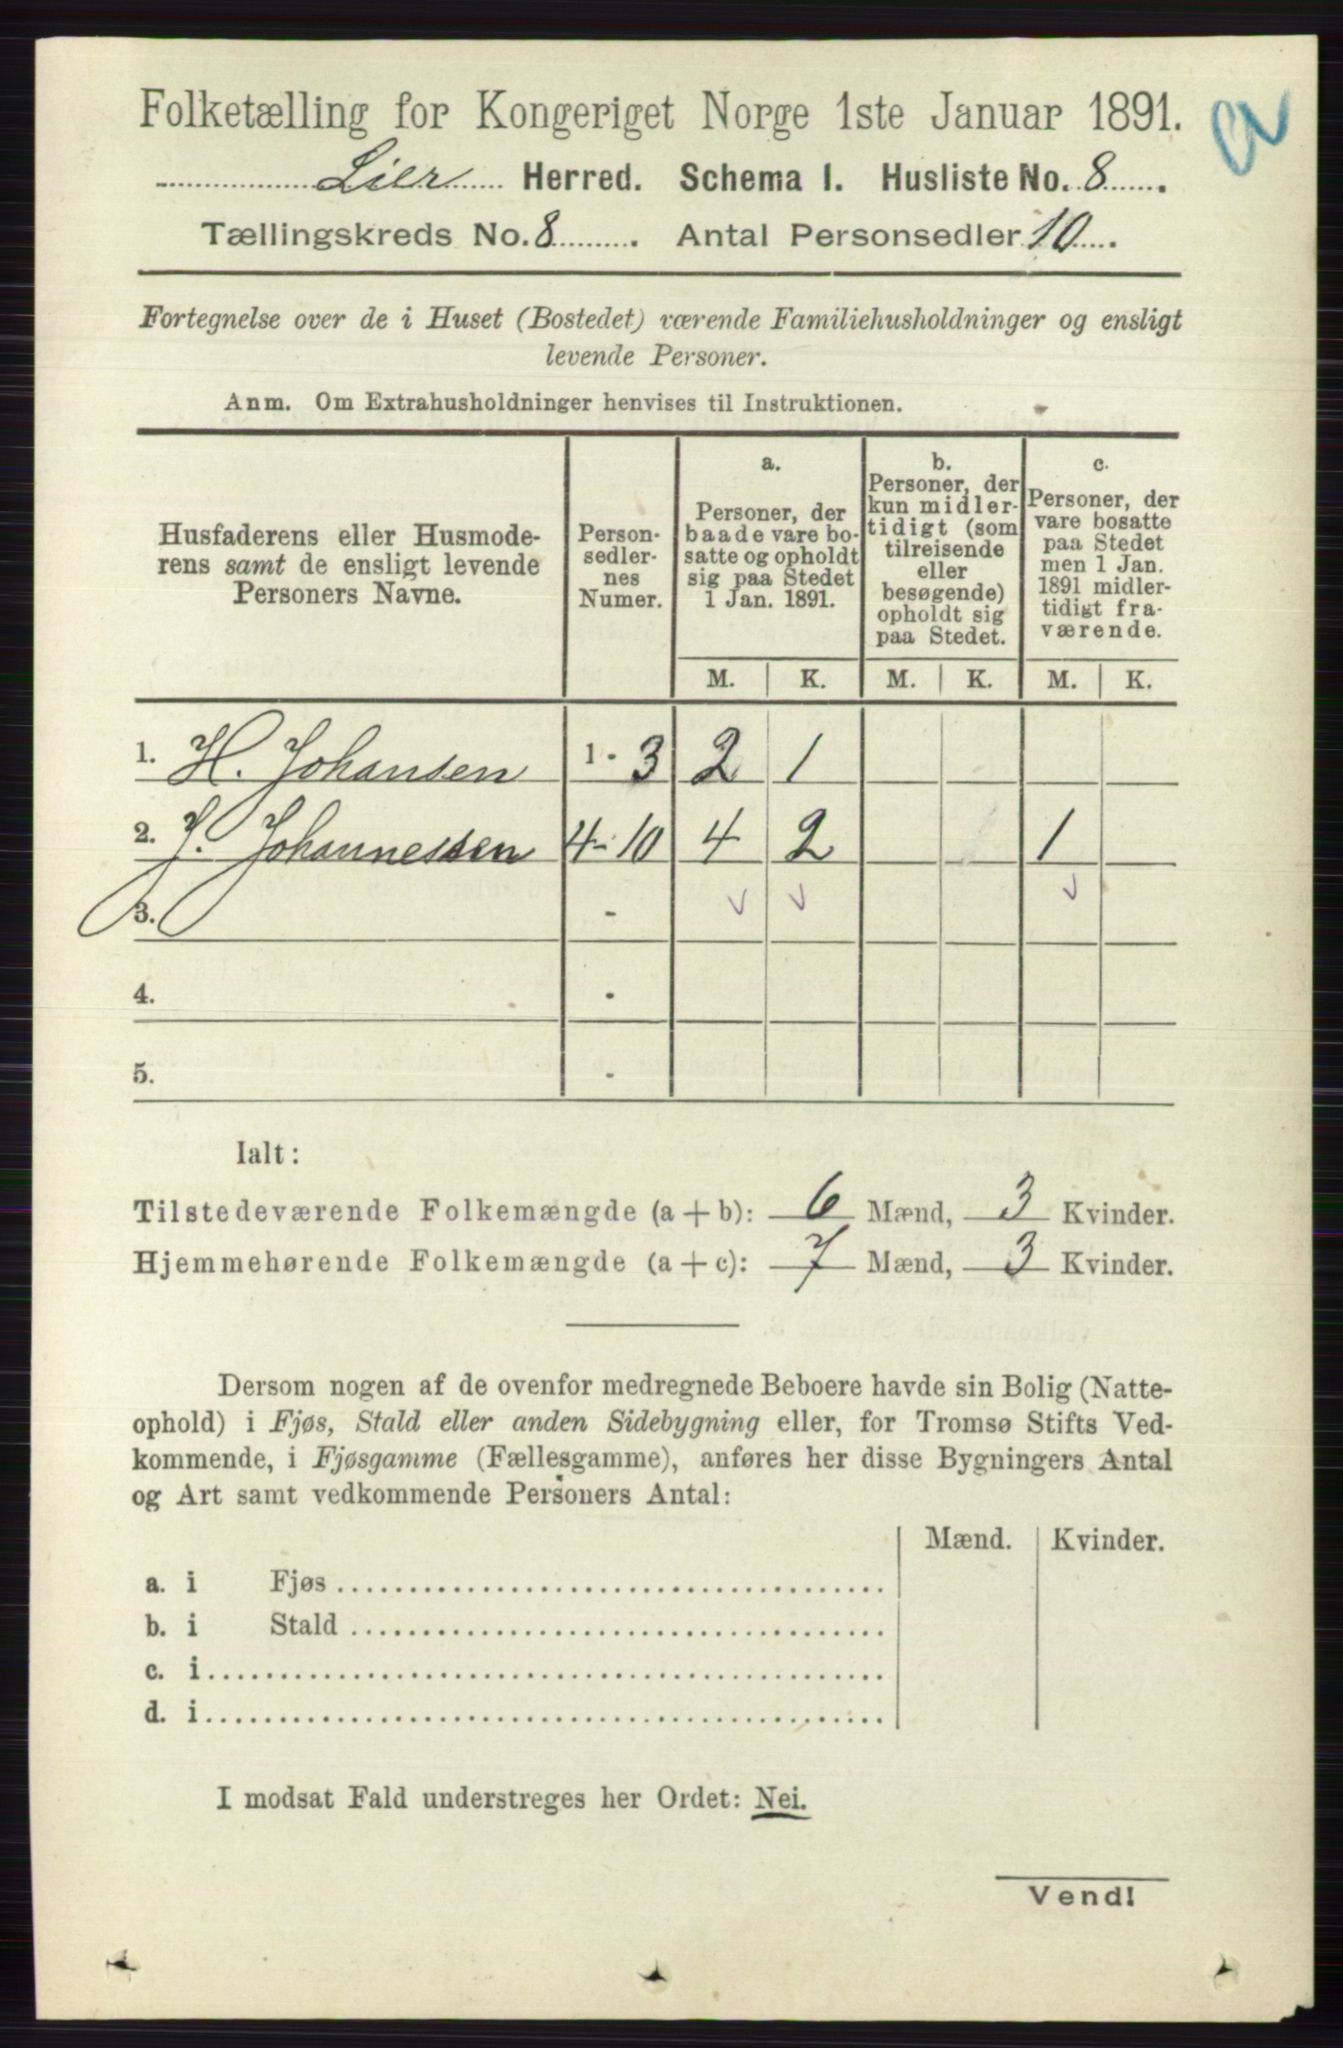 Folketælling for Kongeriget Norge 1ste Januar 1891.
Lier Herred. Schema I. Husliste No. 8.
Tællingskreds No. 8. Antal Personsedler 10.
Fortegnelse over de i Huset (Bostedet) værende Familiehusholdninger og ensligt
levende Personer.
Anm. Om Extrahusholdninger henvises til Instruktionen.
Husfaderens eller Husmode-
rens samt de ensligt levende
Personers Navne.
Person-
sedler-
nes
Numer.
a.
Personer, der
baade vare bo-
satte og opholdt
sig paa Stedet
1 Jan. 1891.
b.
Personer, der
kun midler-
tidigt (som
tilreisende
eller
besøgende)
opholdt sig
paa Stedet.
c.
Personer, der
vare bosatte
paa Stedet
men 1 Jan.
1891 midler-
tidigt fra-
værende.
M. K. M. K. M. K.
1. H. Johansen 1 - 3 2 1
2. J. Johannessen 4 - 10 4 2 1
3. -
4. -
5. -
Ialt:
Tilstedeværende Folkemængde (a + b): 6 Mænd, 3 Kvinder.
Hjemmehørende Folkemængde (a + c): 7 Mænd, 3 Kvinder.
Dersom nogen af de ovenfor medregnede Beboere havde sin Bolig (Natte-
ophold) i Fjøs, Stald eller anden Sidebygning eller, for Tromsø Stifts Ved-
kommende, i Fjøsgamme (Fællesgamme), anføres her disse Bygningers Antal
og Art samt vedkommende Personers Antal:
Mænd. Kvinder.
a. i Fjøs
b. i Stald
c. i
d. i
I modsat Fald understreges her Ordet: Nei.
Vend!